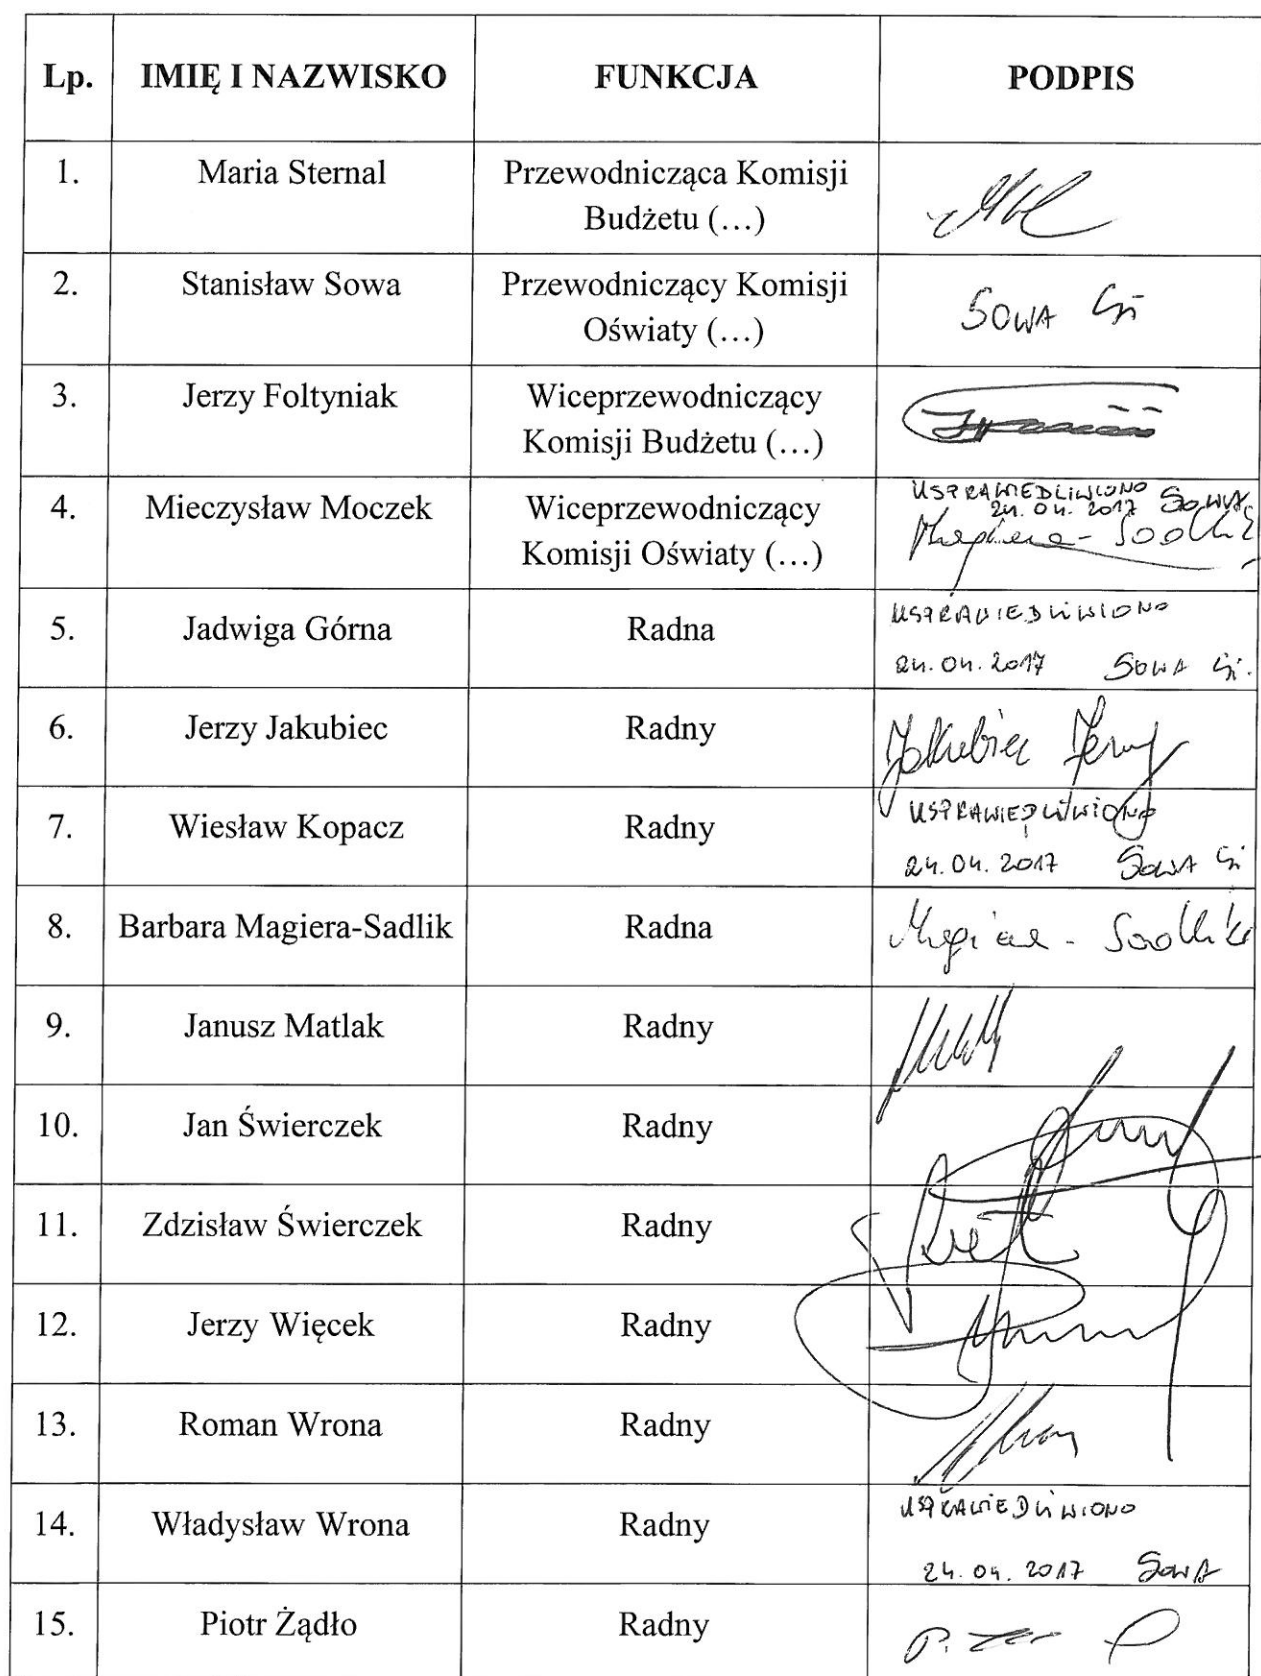 Lp. IMIĘ I NAZWISKO FUNKCJA PODPIS
1. Maria Sternal Przewodnicząca Komisji
Budżetu (…)
2. Stanisław Sowa Przewodniczący Komisji
Oświaty (…)
SOWA
3. Jerzy Foltyniak Wiceprzewodniczący
Komisji Budżetu (…)
4. Mieczysław Moczek Wiceprzewodniczący
Komisji Oświaty (…)
USPRAWIEDLIWIONO
24.04.2017 SOWA
Magiera-Sadlik
5. Jadwiga Górna Radna
USPRAWIEDLIWIONO
24.04.2017 SOWA
6. Jerzy Jakubiec Radny Jakubiec Jerzy
7. Wiesław Kopacz Radny
USPRAWIEDLIWIONO
24.04.2017 SOWA
8. Barbara Magiera-Sadlik Radna Magiera-Sadlik
9. Janusz Matlak Radny
10. Jan Świerczek Radny
11. Zdzisław Świerczek Radny
12. Jerzy Więcek Radny
13. Roman Wrona Radny
14. Władysław Wrona Radny
USPRAWIEDLIWIONO
24.04.2017 SOWA
15. Piotr Żądło Radny